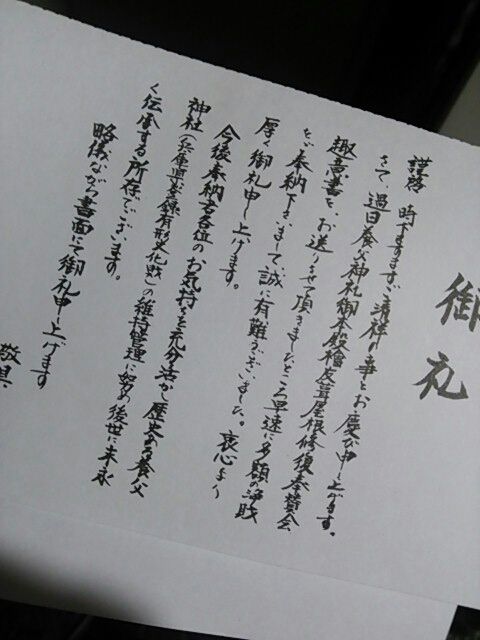 御礼
謹啓 時下ますますご清祥の事とお慶び申し上げます。
さて、過日養父神社御本殿檜皮葺屋根修復奉賛会
趣意書を、お送りさせて頂きましたところ早速に多額の浄財
をご奉納下さいまして、誠に有難うございました。衷心より
厚く御礼申し上げます。
今後奉納者各位のお気持ちを充分活かし歴史ある養父
神社(兵庫県登録有形文化財)の維持管理に努め後世に末永
く伝承する所存でございます。
略儀ながら書面にて御礼申し上げます
敬具